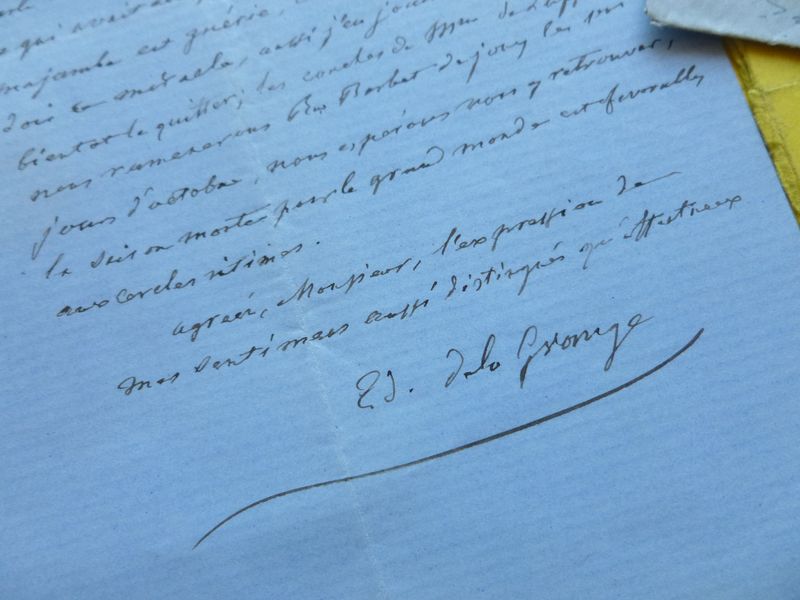 qui avait
est guérie,
miracles, aussi j'en
bientot la quitter; les de Mme de
nous ramenerons Rue Barbet de jouy les
jours d'octobre, nous esperons vous y retrouver,
la saison morte pour le grand monde est favorable
aux cercles intimes.
agréer, Monsieur, l'expression de
mes sentimens aussi distingués qu'affectueux
Ed. de la Grange